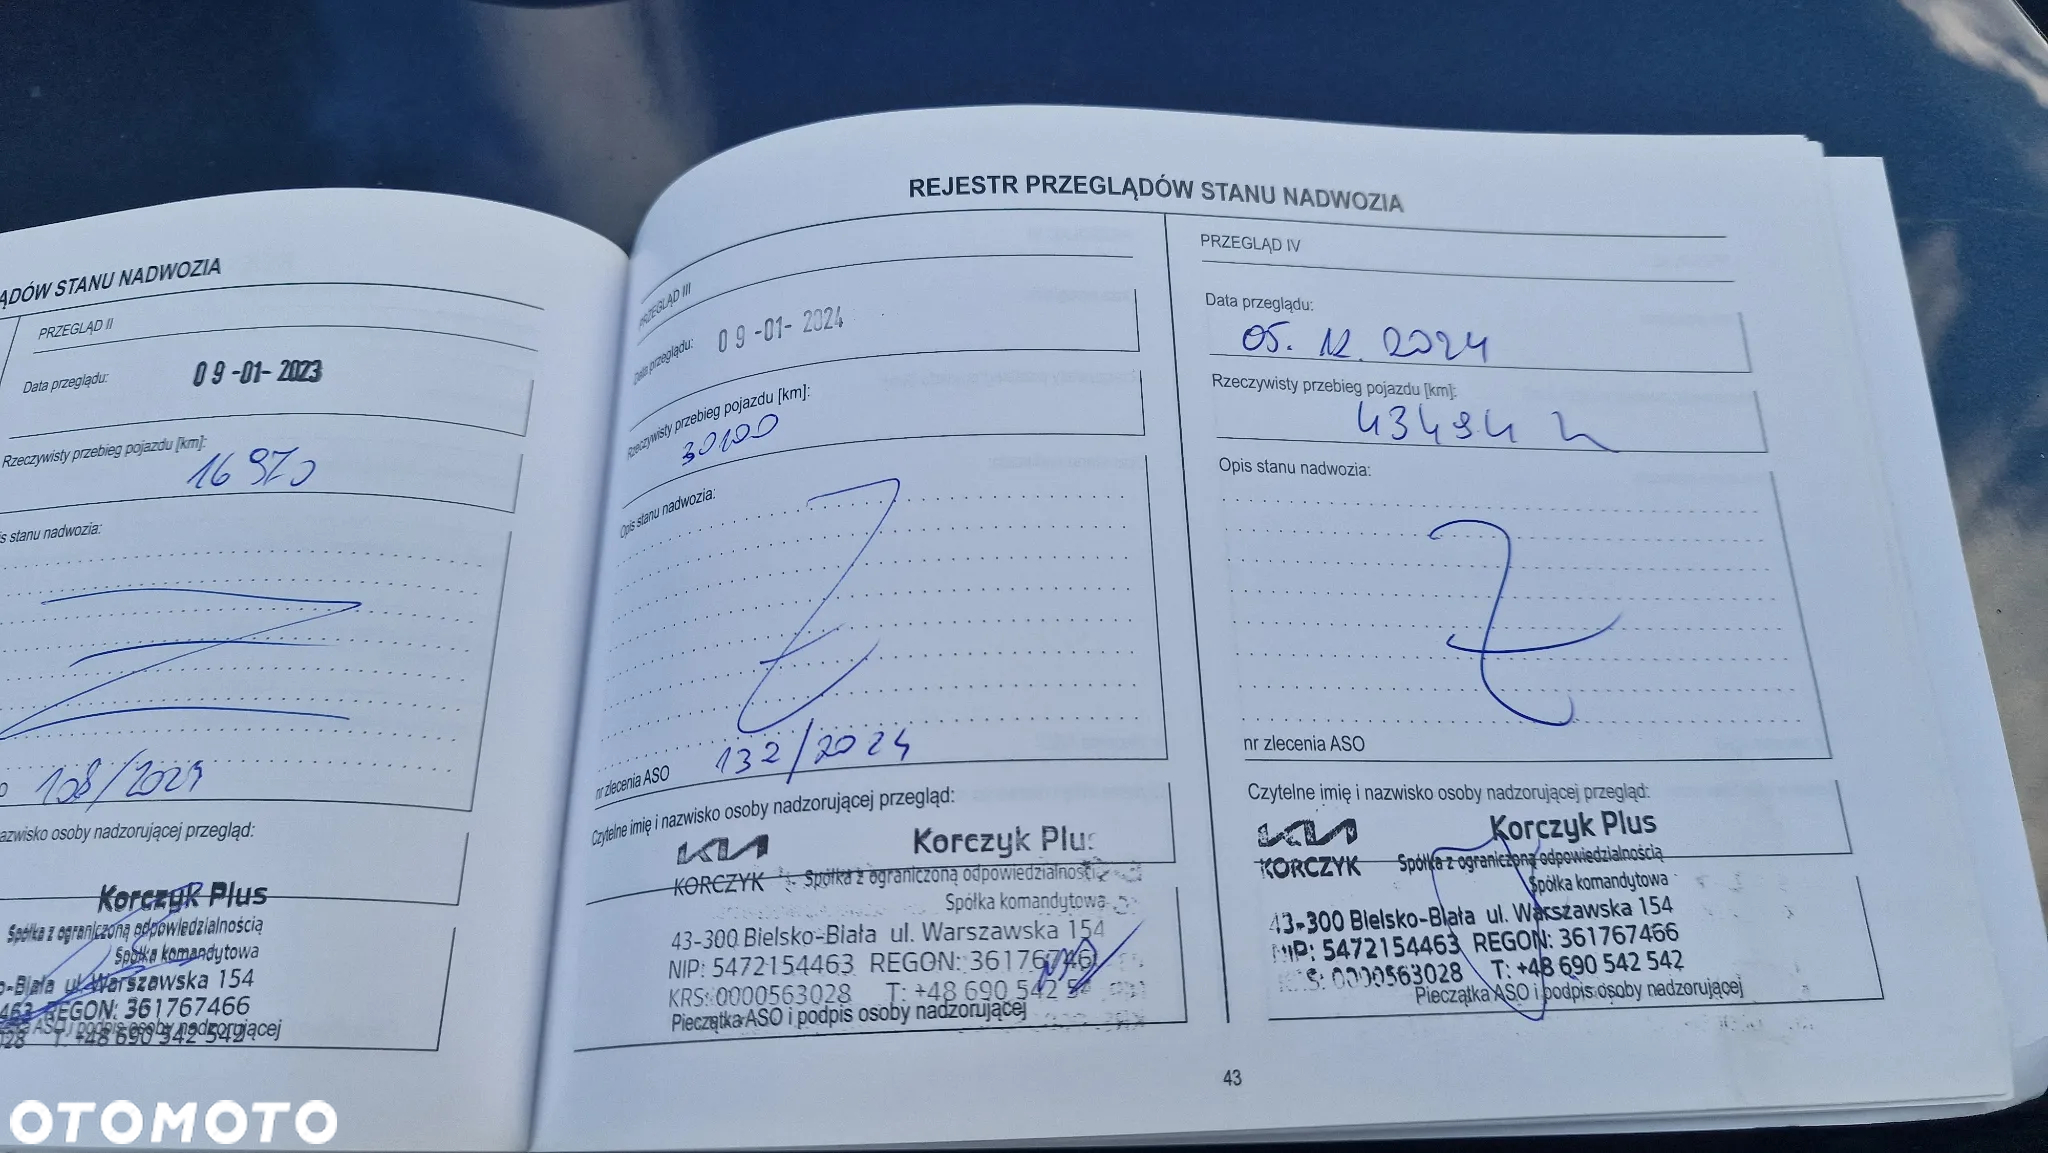 ĄDÓW STANU NADWOZIA
PRZEGLĄD II
Data przeglądu: 09-01-2023
Rzeczywisty przebieg pojazdu [km]:
16970
is stanu nadwozia:
O 108/2023
azwisko osoby nadzorującej przegląd:
Korczyk Plus
Spółka z ograniczoną odpowiedzialnością
Spółka komandytowa
o-Biała ul. Warszawska 154
463 REGON: 361767466
ASO i podpis osoby nadzorującej
028 T: +48 690 542 542
REJESTR PRZEGLĄDÓW STANU NADWOZIA
PRZEGLĄD III
Data przeglądu: 09-01-2024
Rzeczywisty przebieg pojazdu [km]:
30100
Opis stanu nadwozia:
nr zlecenia ASO 132/2024
Czytelne imię i nazwisko osoby nadzorującej przegląd:
KIA Korczyk Plus
KORCZYK Spółka z ograniczoną odpowiedzialnością
Spółka komandytowa
43-300 Bielsko-Biała ul. Warszawska 154
NIP: 5472154463 REGON: 36176746
KRS: 0000563028 T: +48 690 542 54
Pieczątka ASO i podpis osoby nadzorującej
PRZEGLĄD IV
Data przeglądu:
05.12.2024
Rzeczywisty przebieg pojazdu [km]:
43494
Opis stanu nadwozia:
nr zlecenia ASO
Czytelne imię i nazwisko osoby nadzorującej przegląd:
KIA Korczyk Plus
KORCZYK Spółka z ograniczoną odpowiedzialnością
Spółka komandytowa
43-300 Bielsko-Biała ul. Warszawska 154
NIP: 5472154463 REGON: 361767466
S: 0000563028 T: +48 690 542 542
Pieczątka ASO i podpis osoby nadzorującej
43
OTOMOTO